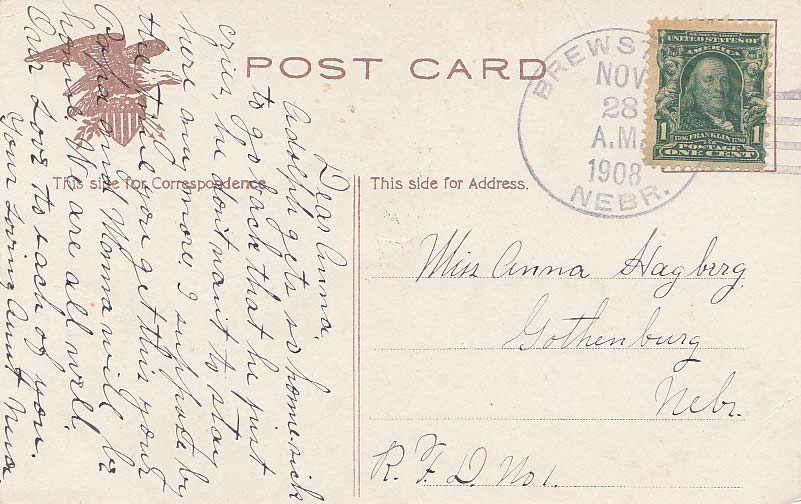 POST CARD
This side for Correspondence.
This side for Address.
BREWST
NOV
28
A.M.
1908
NEBR.
UNITED STATES OF
AMERICA
1 FRANKLIN 1
POSTAGE
ONE CENT
Dear Anna.
Adolph gets so home-sick
to go back that he just
cries, he don't want to stay
here anymore. I suppose by
the time you get this your
Papa and Mamma will be
home. We are all well.
Our Love to each of you.
Your Loving Aunt
Miss Anna Hagberg
Gothenburg
Nebr.
R. F. D. No 1.